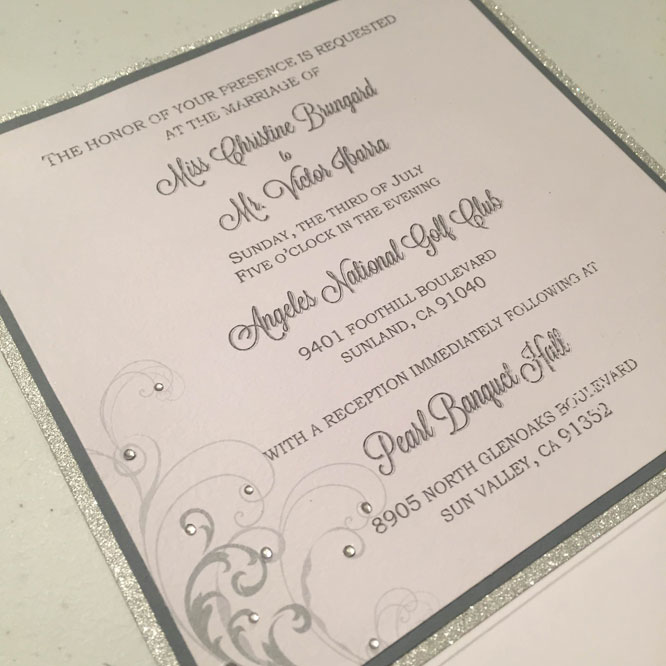 THE HONOR OF YOUR PRESENCE IS REQUESTED
AT THE MARRIAGE OF
Miss Christine Brungard
to
Mr. Victor Ibarra
SUNDAY, THE THIRD OF JULY
FIVE O'CLOCK IN THE EVENING
Angeles National Golf Club
9401 FOOTHILL BOULEVARD
SUNLAND, CA 91040
WITH A RECEPTION IMMEDIATELY FOLLOWING AT
Pearl Banquet Hall
8905 NORTH GLENOAKS BOULEVARD
SUN VALLEY, CA 91352